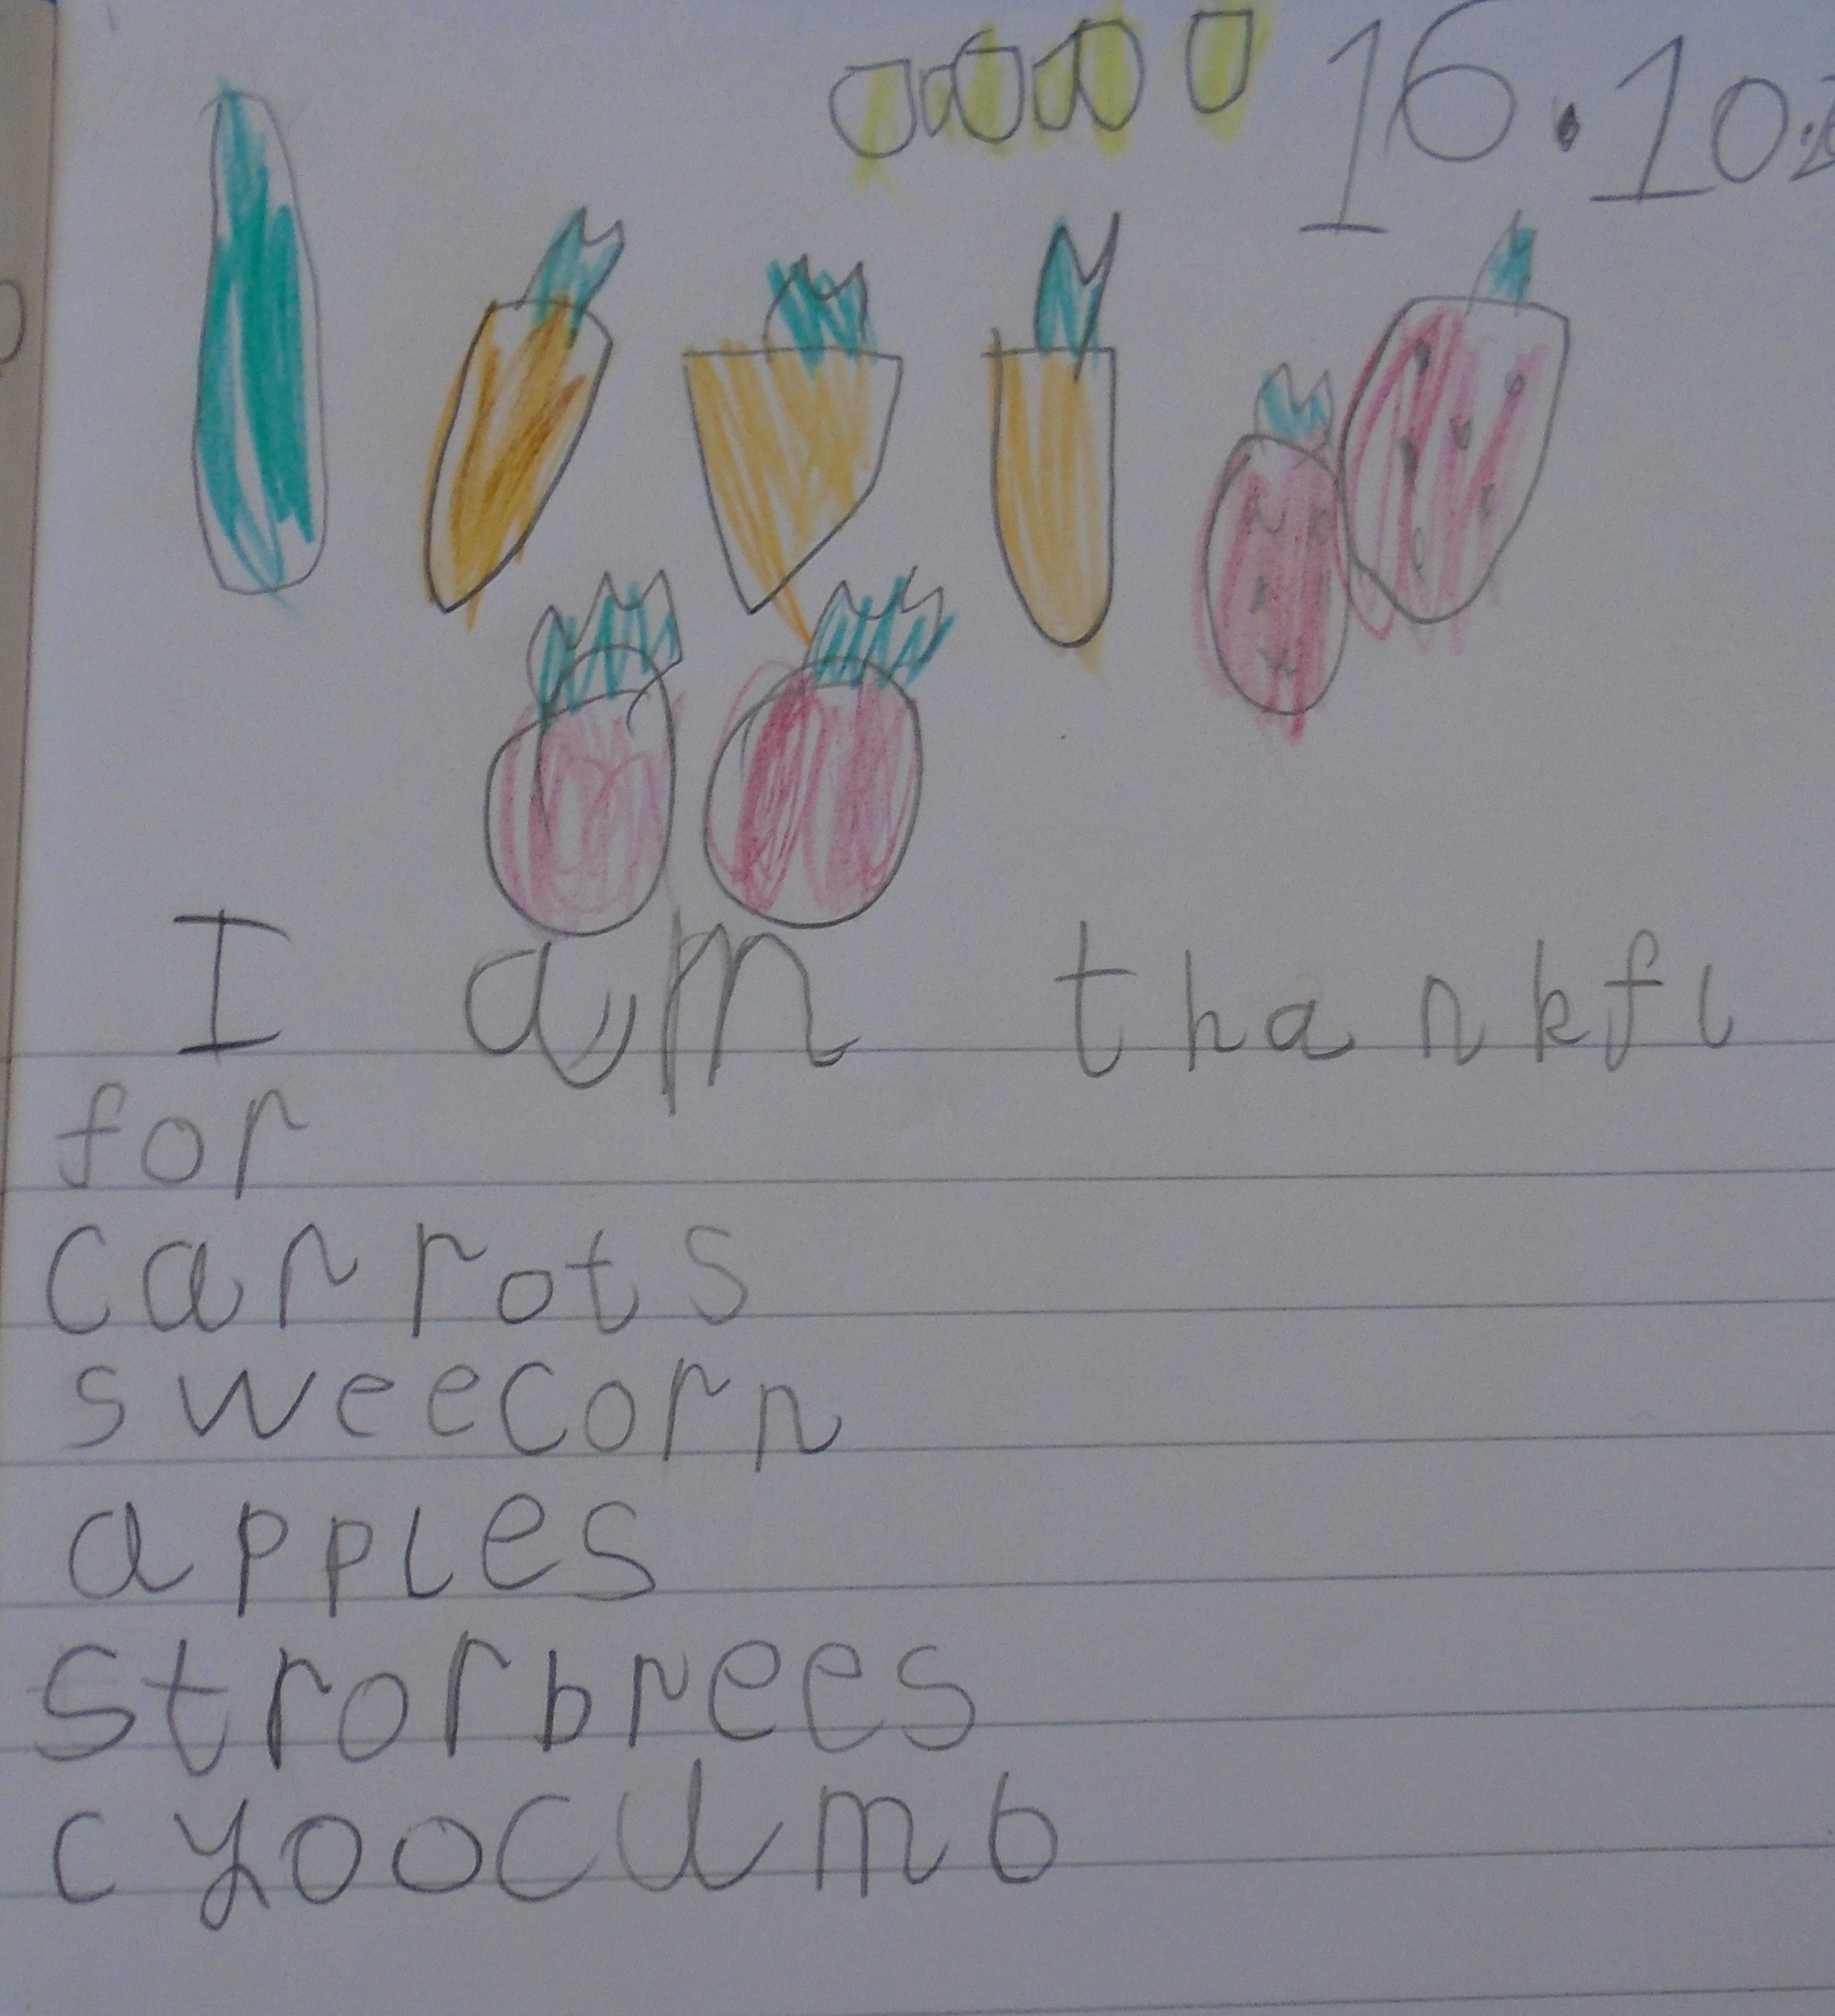 16.10.
I am thankfl
for
carrots
sweecorn
apples
strorbrees
cyoocumb